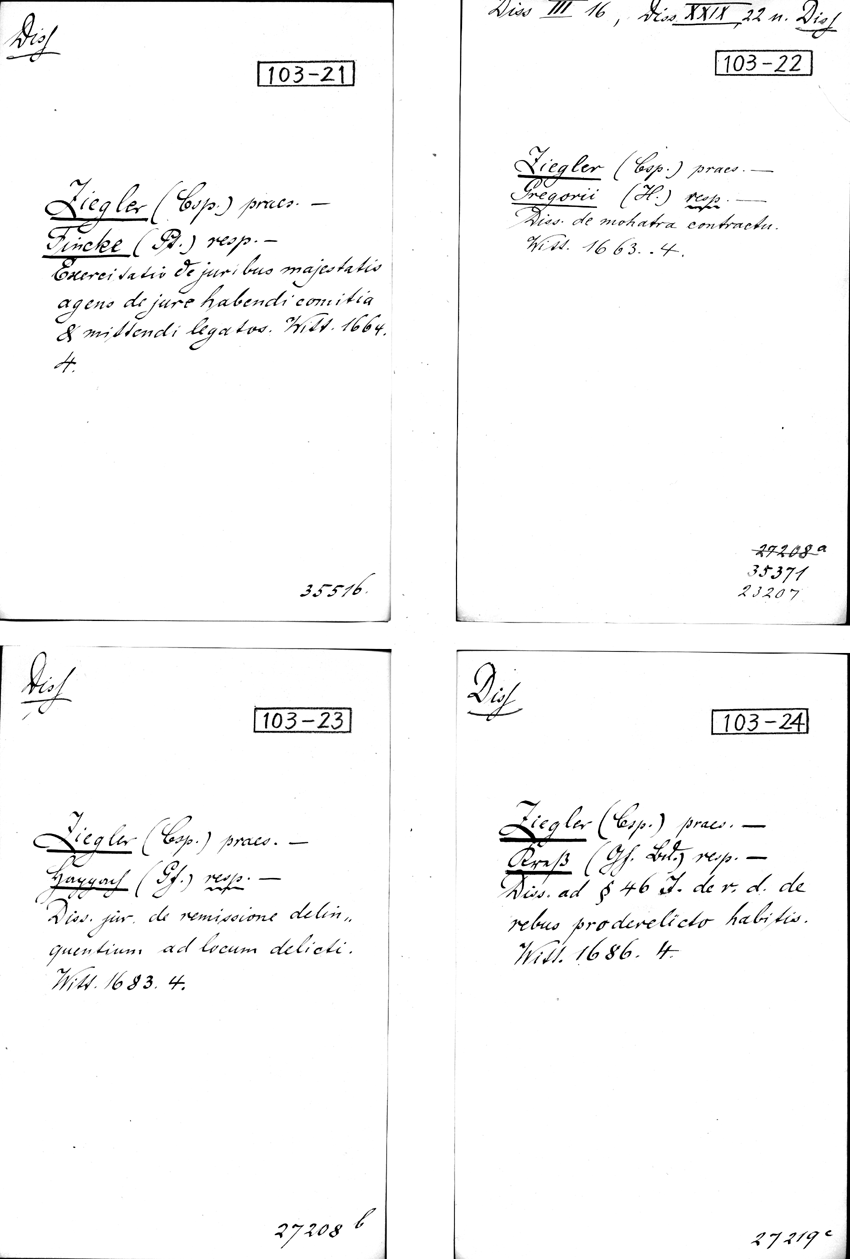 Diss
103-21
Ziegler (Csp.) praes. —
Fincke (Pt.) resp. —
Exercitatio de juribus majestatis
agens de jure habendi comitia
& mittendi legatos. Witt. 1664.
4.
35516.
Diss III 16, Diss XXIX, 22 u. Diss
103-22
Ziegler (Csp.) praes. —
Gregorii (H.) resp. —
Diss. de mohatra contractu.
Witt. 1663. . 4.
27208a
35371
23207
Diss
103-23
Ziegler (Csp.) praes. —
(Gf.) resp. —
Diss. jur. de remissione delin„
quentium ad locum delicti.
Witt. 1683. 4.
27208 b
Diss
103-24
Ziegler (Csp.) praes. —
Kreß (Gf. Bd.) resp. —
Diss. ad § 46 I. de r. d. de
rebus pro derelicto habitis.
Witt. 1686. 4.
27219c